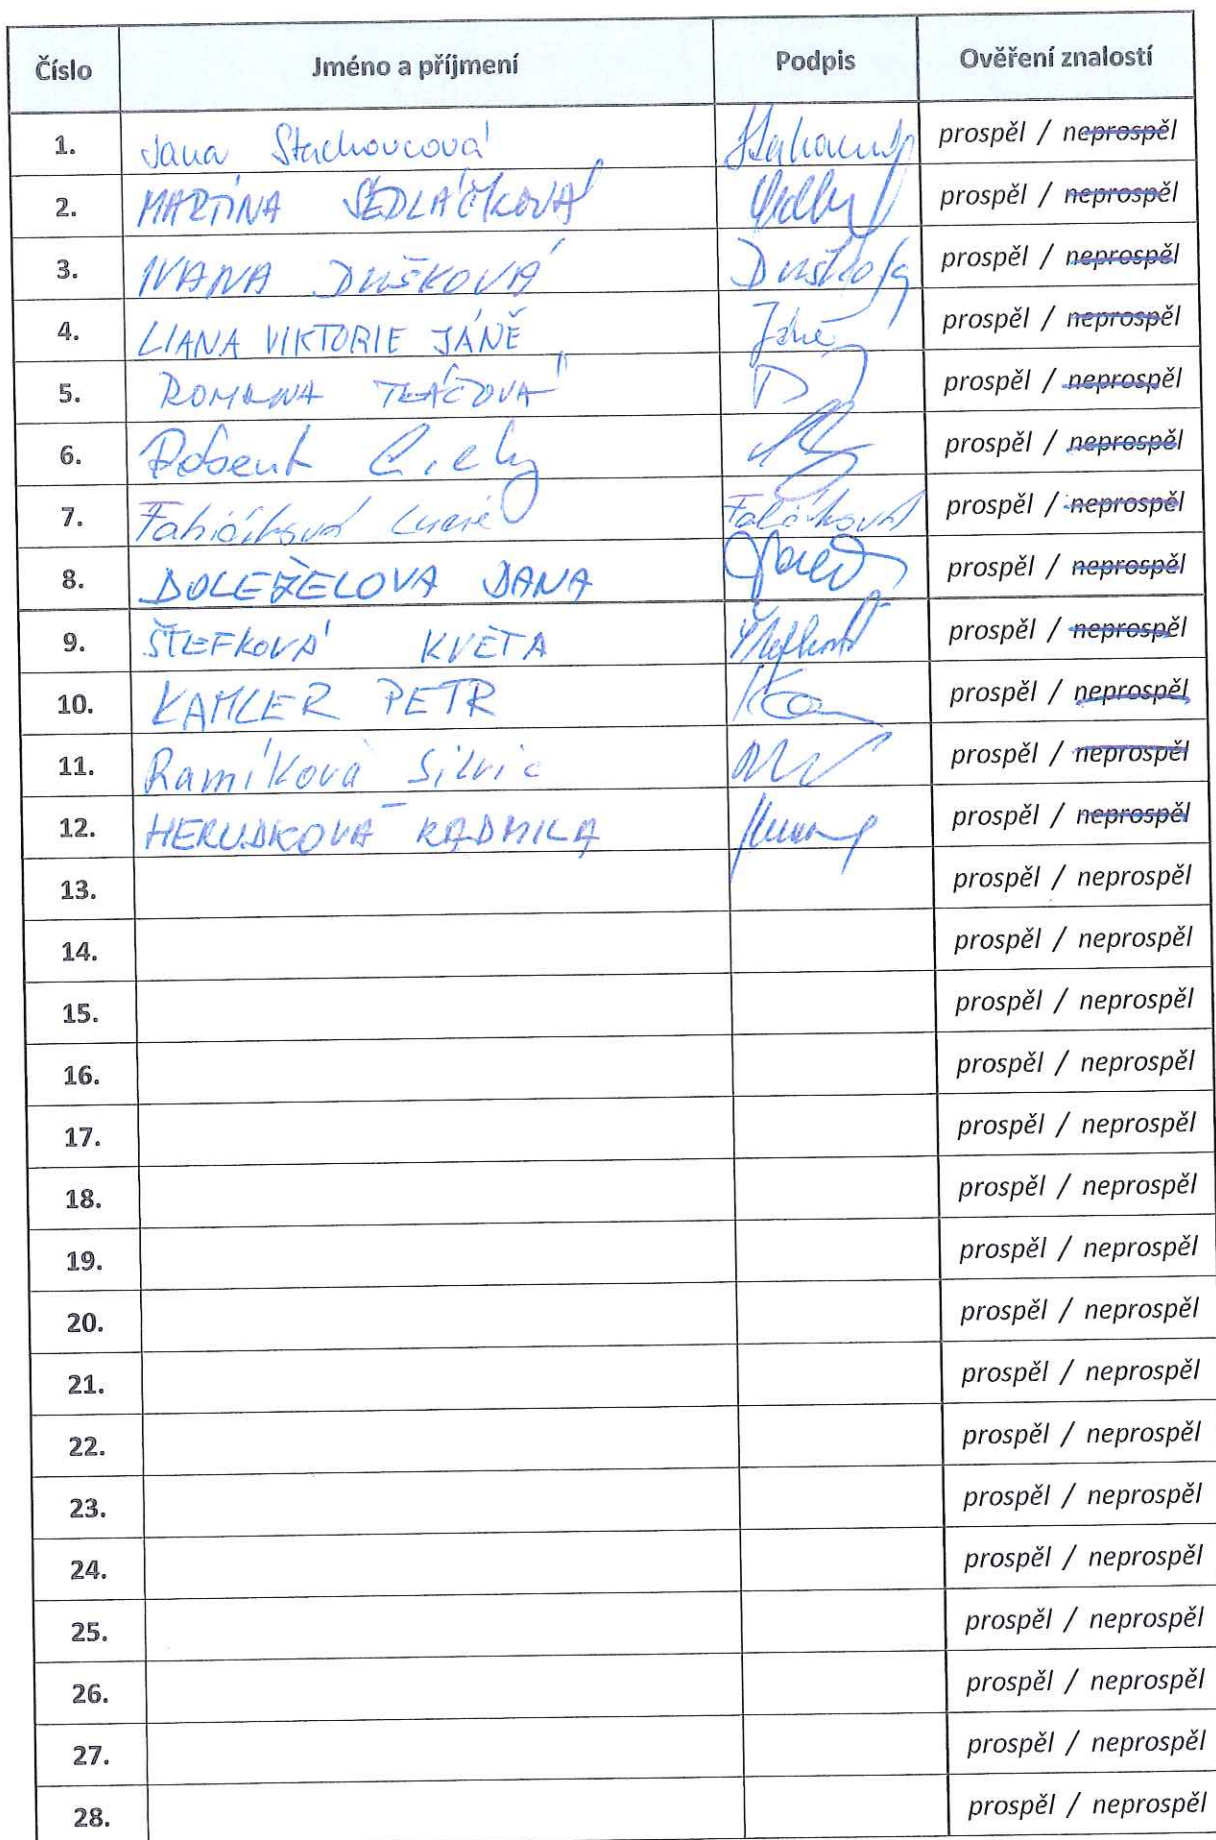 Číslo Jméno a příjmení Podpis Ověření znalostí
1. Jana Stachovcová prospěl / neprospěl
2. MARTINA SEDLÁČKOVÁ prospěl / neprospěl
3. IVANA DUŠKOVÁ Dušková prospěl / neprospěl
4. LIANA VIKTORIE JÁNĚ Jáně prospěl / neprospěl
5. ROMANA prospěl / neprospěl
6. Robert prospěl / neprospěl
7. Lucie prospěl / neprospěl
8. DOLEŽELOVA DANA prospěl / neprospěl
9. ŠTEFKOVÁ KVĚTA prospěl / neprospěl
10. KAMLER PETR prospěl / neprospěl
11. Ramíková Silvie prospěl / neprospěl
12. HERUDKOVÁ RADMILA prospěl / neprospěl
13. prospěl / neprospěl
14. prospěl / neprospěl
15. prospěl / neprospěl
16. prospěl / neprospěl
17. prospěl / neprospěl
18. prospěl / neprospěl
19. prospěl / neprospěl
20. prospěl / neprospěl
21. prospěl / neprospěl
22. prospěl / neprospěl
23. prospěl / neprospěl
24. prospěl / neprospěl
25. prospěl / neprospěl
26. prospěl / neprospěl
27. prospěl / neprospěl
28. prospěl / neprospěl